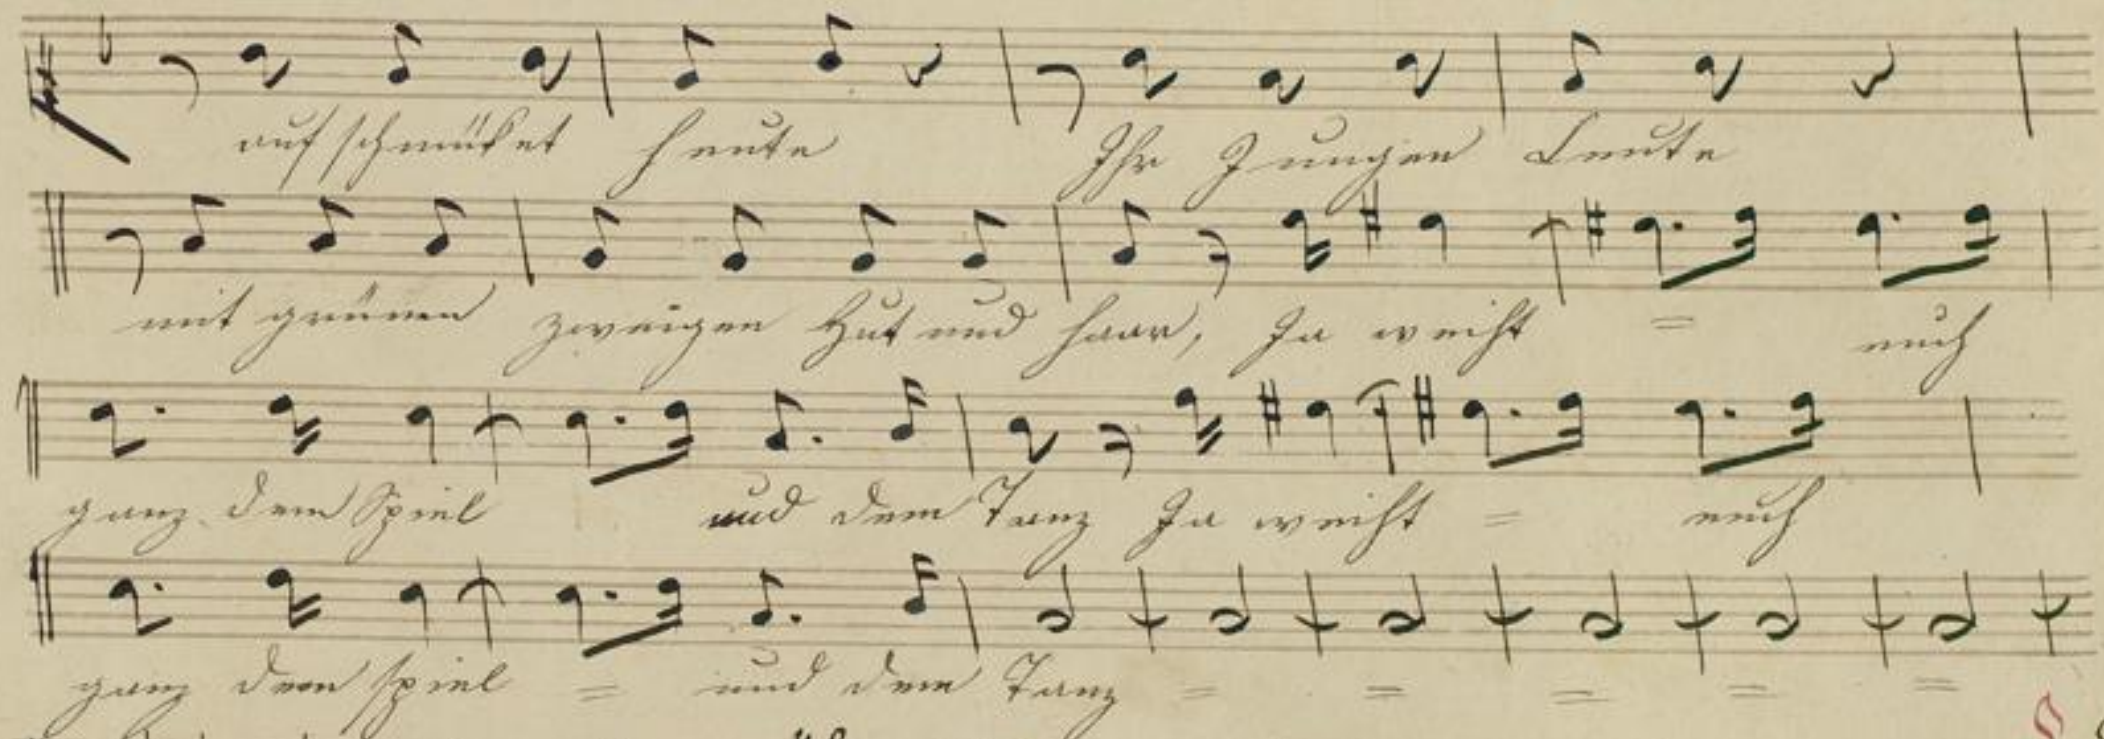 auf schmüket heute Ihr Jungen Leute
mit grünen zweigen Hut und haar, Ja weiht = euch
ganz dem Spiel und dem Tanz Ja weiht = euch
ganz dem Spiel = und dem Tanz = = = = =